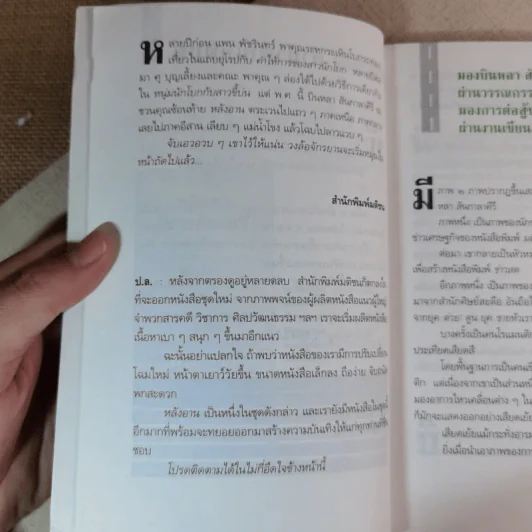 หลายปีก่อน แพน พัชรินทร์ พาคุณระหกระเหินไปกระเตง
เที่ยวในแถบยุโรปกับ คำให้การของสาวนักโบก
มา คุ บุญเลี้ยงและคณะ พาคุณ ๆ ล่องใต้ไปด้วยวิธีการเดียวกัน
ใน หนุ่มนักโบกกับสาวขี้บ่น แต่ พ.ศ. นี้ บินหลา สันกาลาคีรี
ชวนคุณซ้อนท้าย หลังอาน ตระเวนไปแถว ๆ ภาคเหนือ
เลยไปภาคอีสาน เลียบ ๆ แม่น้ำโขง แล้วโฉบไปลาวแวบ ๆ
จับเอวอวบ ๆ เขาไว้ให้แน่น วงล้อจักรยานจะเริ่มหมุนใน
หน้าถัดไปแล้ว...
สำนักพิมพ์มติชน
ป.ล. : หลังจากตรองดูอยู่หลายตลบ สำนักพิมพ์มติชนก็ตกลงใจ
ที่จะออกหนังสือชุดใหม่ จากภาพพจน์ของผู้ผลิตหนังสือแนวผู้ใหญ่
จำพวกสารคดี วิชาการ ศิลปวัฒนธรรม ฯลฯ เราจะเริ่มผลิตหนังสือ
เนื้อหาเบา ๆ สนุก ๆ ขึ้นมาอีกแนว
ฉะนั้นอย่าแปลกใจ ถ้าพบว่าหนังสือของเรามีการปรับเปลี่ยน
โฉมใหม่ หน้าตาเยาว์วัยขึ้น ขนาดหนังสือเล็กลง ถือง่าย จับถนัด
พกสะดวก
หลังอาน เป็นหนึ่งในชุดดังกล่าว และเรายังมีหนังสือในชุดนี้
อีกมากที่พร้อมจะทยอยออกมาสร้างความบันเทิงให้แก่ทุกท่านที่ชื่น
ชอบ
โปรดติดตามได้ในไม่กี่อึดใจข้างหน้านี้
มองบินหลา
ผ่านวรรณกรรม
มองการต่อสู้
ผ่านงานเขียน
มีภาพ ๒ ภาพปรากฏขึ้น
หลา สันกาลาคีรี
ภาพหนึ่ง เป็นภาพของนัก
ข่าวเศรษฐกิจของหนังสือพิมพ์
ต่อมา เขากลายเป็นหัวหน้า
เพื่อสร้างหนังสือพิมพ์ ข่าวสด
อีกภาพหนึ่ง เป็นภาพของ
มาจากสำนักศิษย์สะดือ
จากยุค สุญ ยุค ขายหัวเราะ
บางครั้งเป็นคนโรแมนติก
ประเทียดเสียดสี
โดยพื้นฐานการเป็นคน
ติก แต่เนื่องจากเขาเป็นส่วน
มองอาการไหวเคลื่อนต่าง ๆ
ก็มักจะแสดงออกอย่างเสียดเย้ย
เสียดเย้ยแม้กระทั่งอาร
ยิ่งเมื่อนำเอาภาพของการ